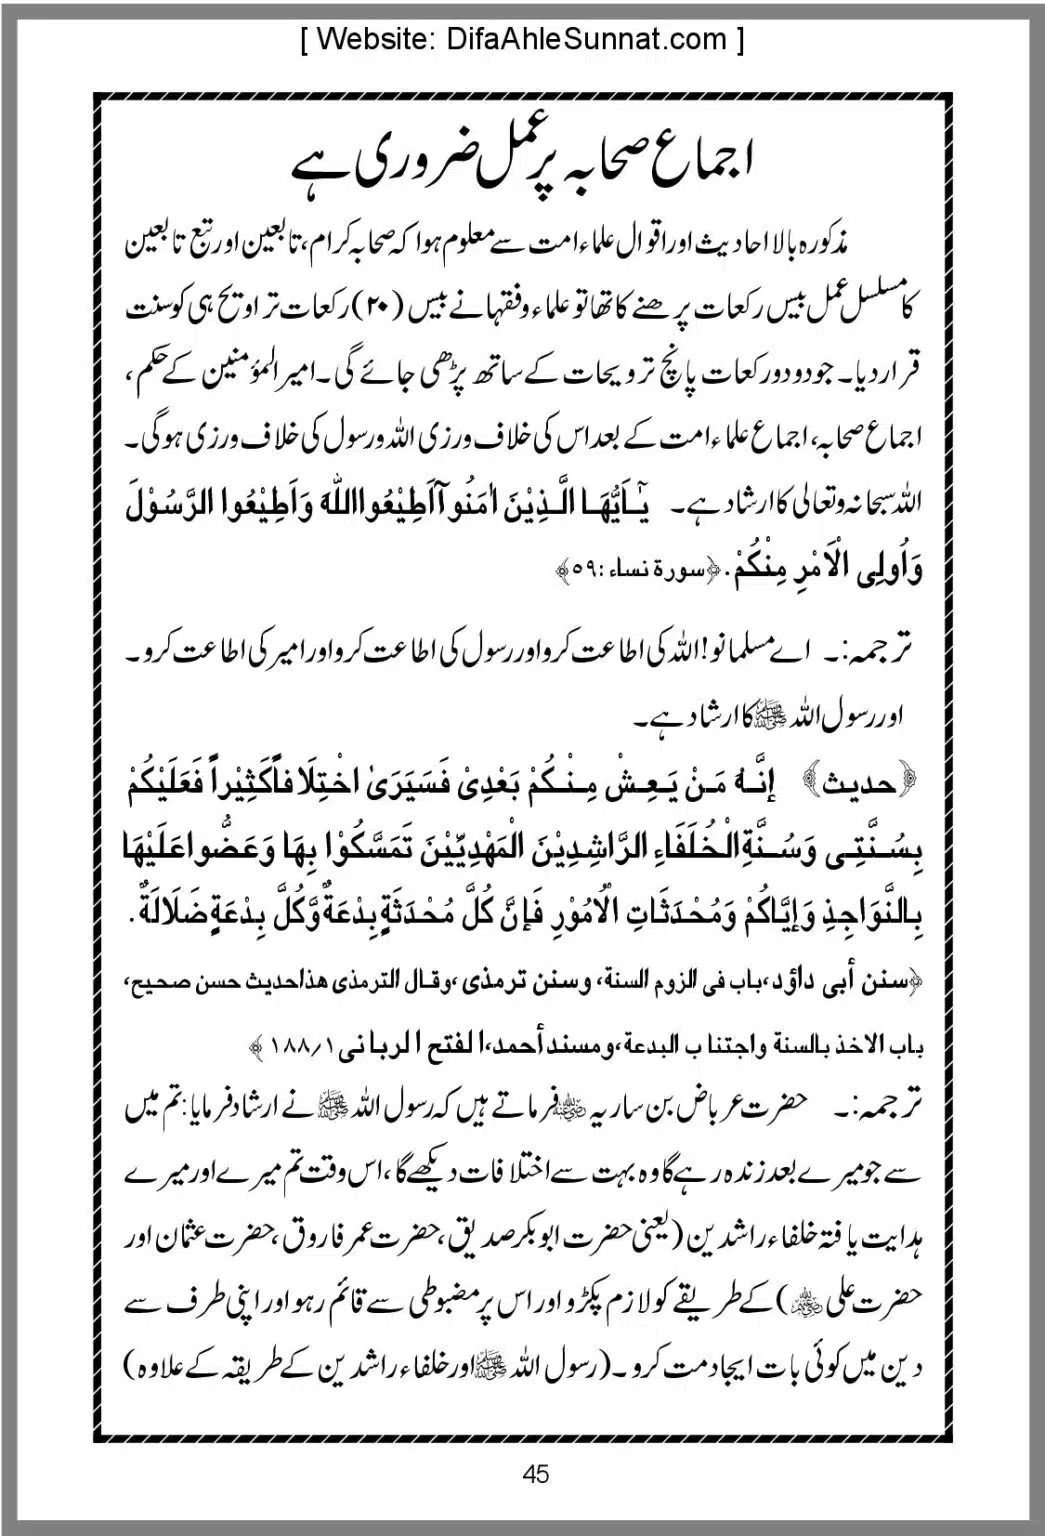 [ Website: DifaAhleSunnat.com ]
اجماع صحابہ پر عمل ضروری ہے
مذکورہ بالا احادیث اور اقوال علماء امت سے معلوم ہوا کہ صحابہ کرام، تابعین اور تبع تابعین
کا مسلسل عمل بیس رکعات پڑھنے کا تھا تو علماء و فقہا نے بیس (۲۰) رکعات تراویح ہی کو سنت
قرار دیا۔ جو دو دو رکعات پانچ ترویحات کے ساتھ پڑھی جائے گی۔ امیر المؤمنین کے حکم،
اجماع صحابہ، اجماع علماء امت کے بعد اس کی خلاف ورزی اللہ و رسول کی خلاف ورزی ہوگی۔
اللہ سبحانہ وتعالی کا ارشاد ہے۔ یٰٓـاَیُّھَـا الَّـذِیْنَ اٰمَنُوآ اَطِیْعُوا اللّٰهَ وَاَطِیْعُوا الرَّسُوْلَ
وَاُولِی الْاَمْرِ مِنْكُمْ. ﴿سورة نساء :۵۹﴾
ترجمہ:۔ اے مسلمانو! اللہ کی اطاعت کرو اور رسول کی اطاعت کرو اور امیر کی اطاعت کرو۔
اور رسول اللہ ﷺ کا ارشاد ہے۔
﴿حدیث﴾ إنَّـهُ مَـنْ یَـعِـشْ مِـنْـكُمْ بَعْدِیْ فَسَیَرَیٰ اخْتِلَافاًکَثِیْراً فَعَلَیْكُمْ
بِسُـنَّتِـی وَسُـنَّةِ الْـخُلَفَاءِ الرَّاشِدِیْنَ الْمَهْدِیِّیْنَ تَمَسَّكُوْا بِهَا وَعَضُّوا عَلَیْهَا
بِالنَّوَاجِذِ وَإیَّاكُمْ وَمُحْدَثَاتِ الْاُمُوْرِ فَإنَّ كُلَّ مُحْدَثَةٍ بِدْعَةٌ وَّكُلَّ بِدْعَةٍ ضَلَالَةٌ.
﴿سنن أبی داؤد، باب فی الزوم السنة، وسنن ترمذی ،وقـال الترمذی هذاحدیث حسن صحیح،
باب الاخذ بالسنة واجتناب البدعة، ومسند أحمد، الفتح الربانی ۱۸۸/۱﴾
ترجمہ:۔ حضرت عرباض بن ساریہ ؓ فرماتے ہیں کہ رسول اللہ ﷺ نے ارشاد فرمایا: تم میں
سے جو میرے بعد زندہ رہے گا وہ بہت سے اختلافات دیکھے گا، اس وقت تم میرے اور میرے
ہدایت یافتہ خلفاء راشدین (یعنی حضرت ابوبکر صدیق، حضرت عمر فاروق، حضرت عثمان اور
حضرت علی ؓ) کے طریقے کو لازم پکڑو اور اس پر مضبوطی سے قائم رہو اور اپنی طرف سے
دین میں کوئی بات ایجاد مت کرو۔ (رسول اللہ ﷺ اور خلفاء راشدین کے طریقہ کے علاوہ)
45